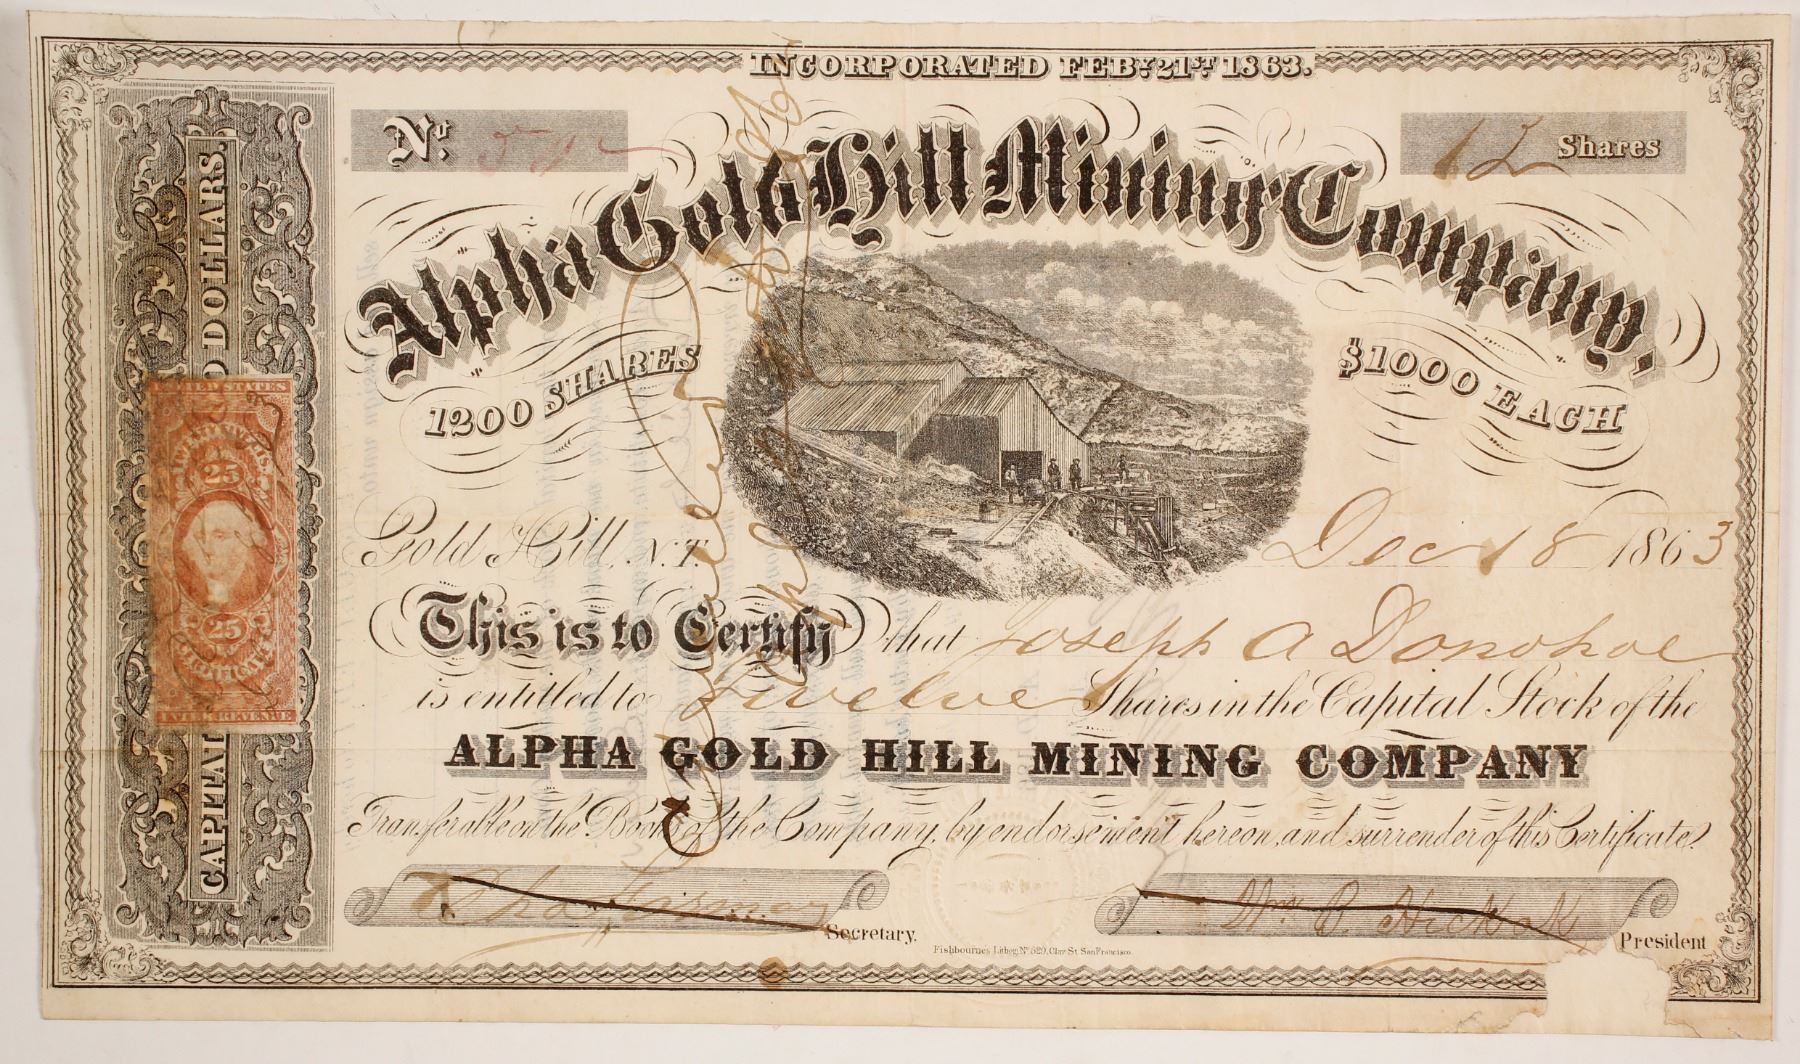 INCORPORATED FEBY. 21ST 1863.
No.
12 Shares
Alpha Gold Hill Mining Company,
1200 SHARES
$1000 EACH
Gold Hill, N.T. Dec 18 1863
This is to Certify that Joseph A Donohoe
is entitled to Twelve Shares in the Capital Stock of the
ALPHA GOLD HILL MINING COMPANY
Transferable on the Books of the Company, by endorsement hereon, and surrender of this Certificate.
Secretary.
Wm
President
Fishbourne's Lithog. No. 529, Clay St. San Francisco.
CAPITAL DOLLARS.
UNITED STATES
25
25
CERTIFICATE
INTER. REVENUE